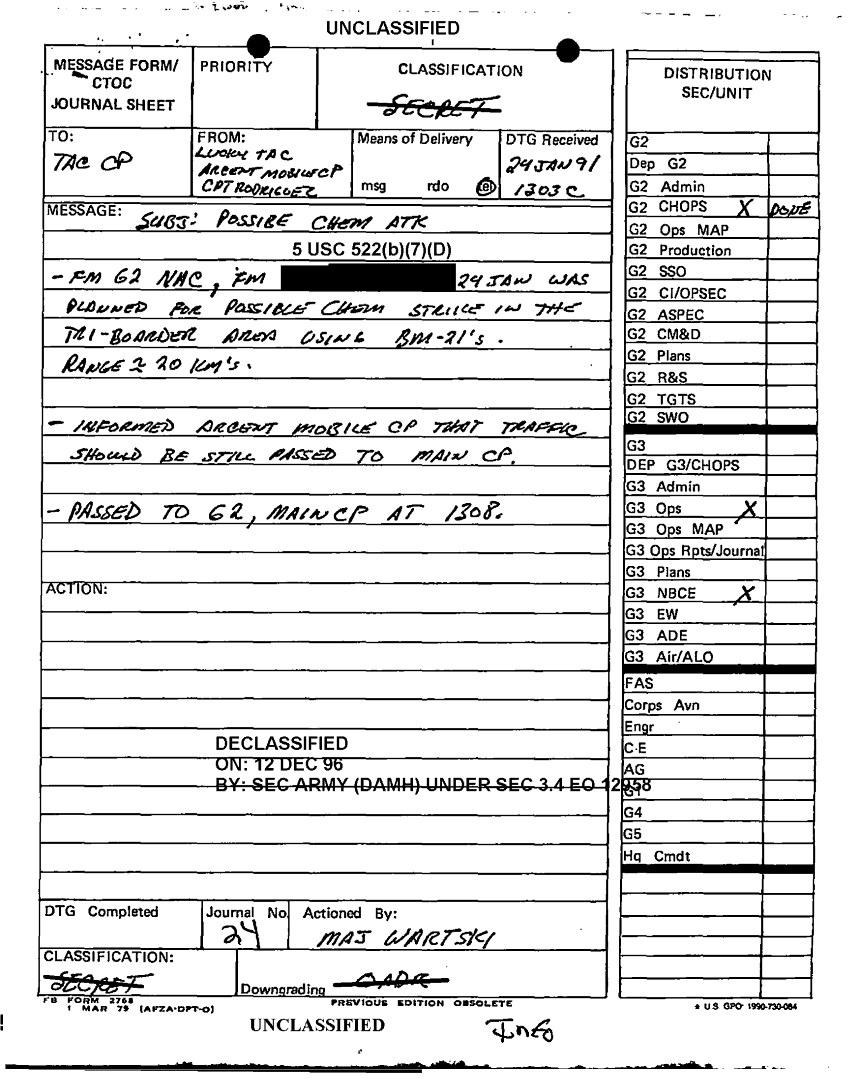 UNCLASSIFIED
MESSAGE FORM/
CTOC
JOURNAL SHEET
PRIORITY
CLASSIFICATION
SECRET
TO:
TAC CP
FROM:
LUCKY TAC
ARCENT MOBILE CP
CPT RODRIGUEZ
Means of Delivery
msg rdo tel
DTG Received
24 JAN 91
1303 C
MESSAGE: SUBJ: POSSIBE CHEM ATK
5 USC 522(b)(7)(D)
- FM G2 NAC, FM 24 JAN WAS
PLANNED FOR POSSIBLE CHEM STRIKE IN THE
TRI-BOARDER AREA USING BM-21's.
RANGE ≥ 20 KM's.
- INFORMED ARCENT MOBILE CP THAT TRAFFIC
SHOULD BE STILL PASSED TO MAIN CP.
- PASSED TO G2, MAIN CP AT 1308.
ACTION:
DECLASSIFIED
ON: 12 DEC 96
BY: SEC ARMY (DAMH) UNDER SEC 3.4 EO 12958
DTG Completed
Journal No.
24
Actioned By:
MAJ WARTSKI
CLASSIFICATION:
SECRET
Downgrading OADR
FB FORM 2768
1 MAR 79 (AFZA-DPT-O)
PREVIOUS EDITION OBSOLETE
UNCLASSIFIED
Info
DISTRIBUTION
SEC/UNIT
G2
Dep G2
G2 Admin
G2 CHOPS X DONE
G2 Ops MAP
G2 Production
G2 SSO
G2 CI/OPSEC
G2 ASPEC
G2 CM&D
G2 Plans
G2 R&S
G2 TGTS
G2 SWO
G3
DEP G3/CHOPS
G3 Admin
G3 Ops X
G3 Ops MAP
G3 Ops Rpts/Journal
G3 Plans
G3 NBCE X
G3 EW
G3 ADE
G3 Air/ALO
FAS
Corps Avn
Engr
C-E
AG
G1
G4
G5
Hq Cmdt
* U.S. GPO 1990-730-084